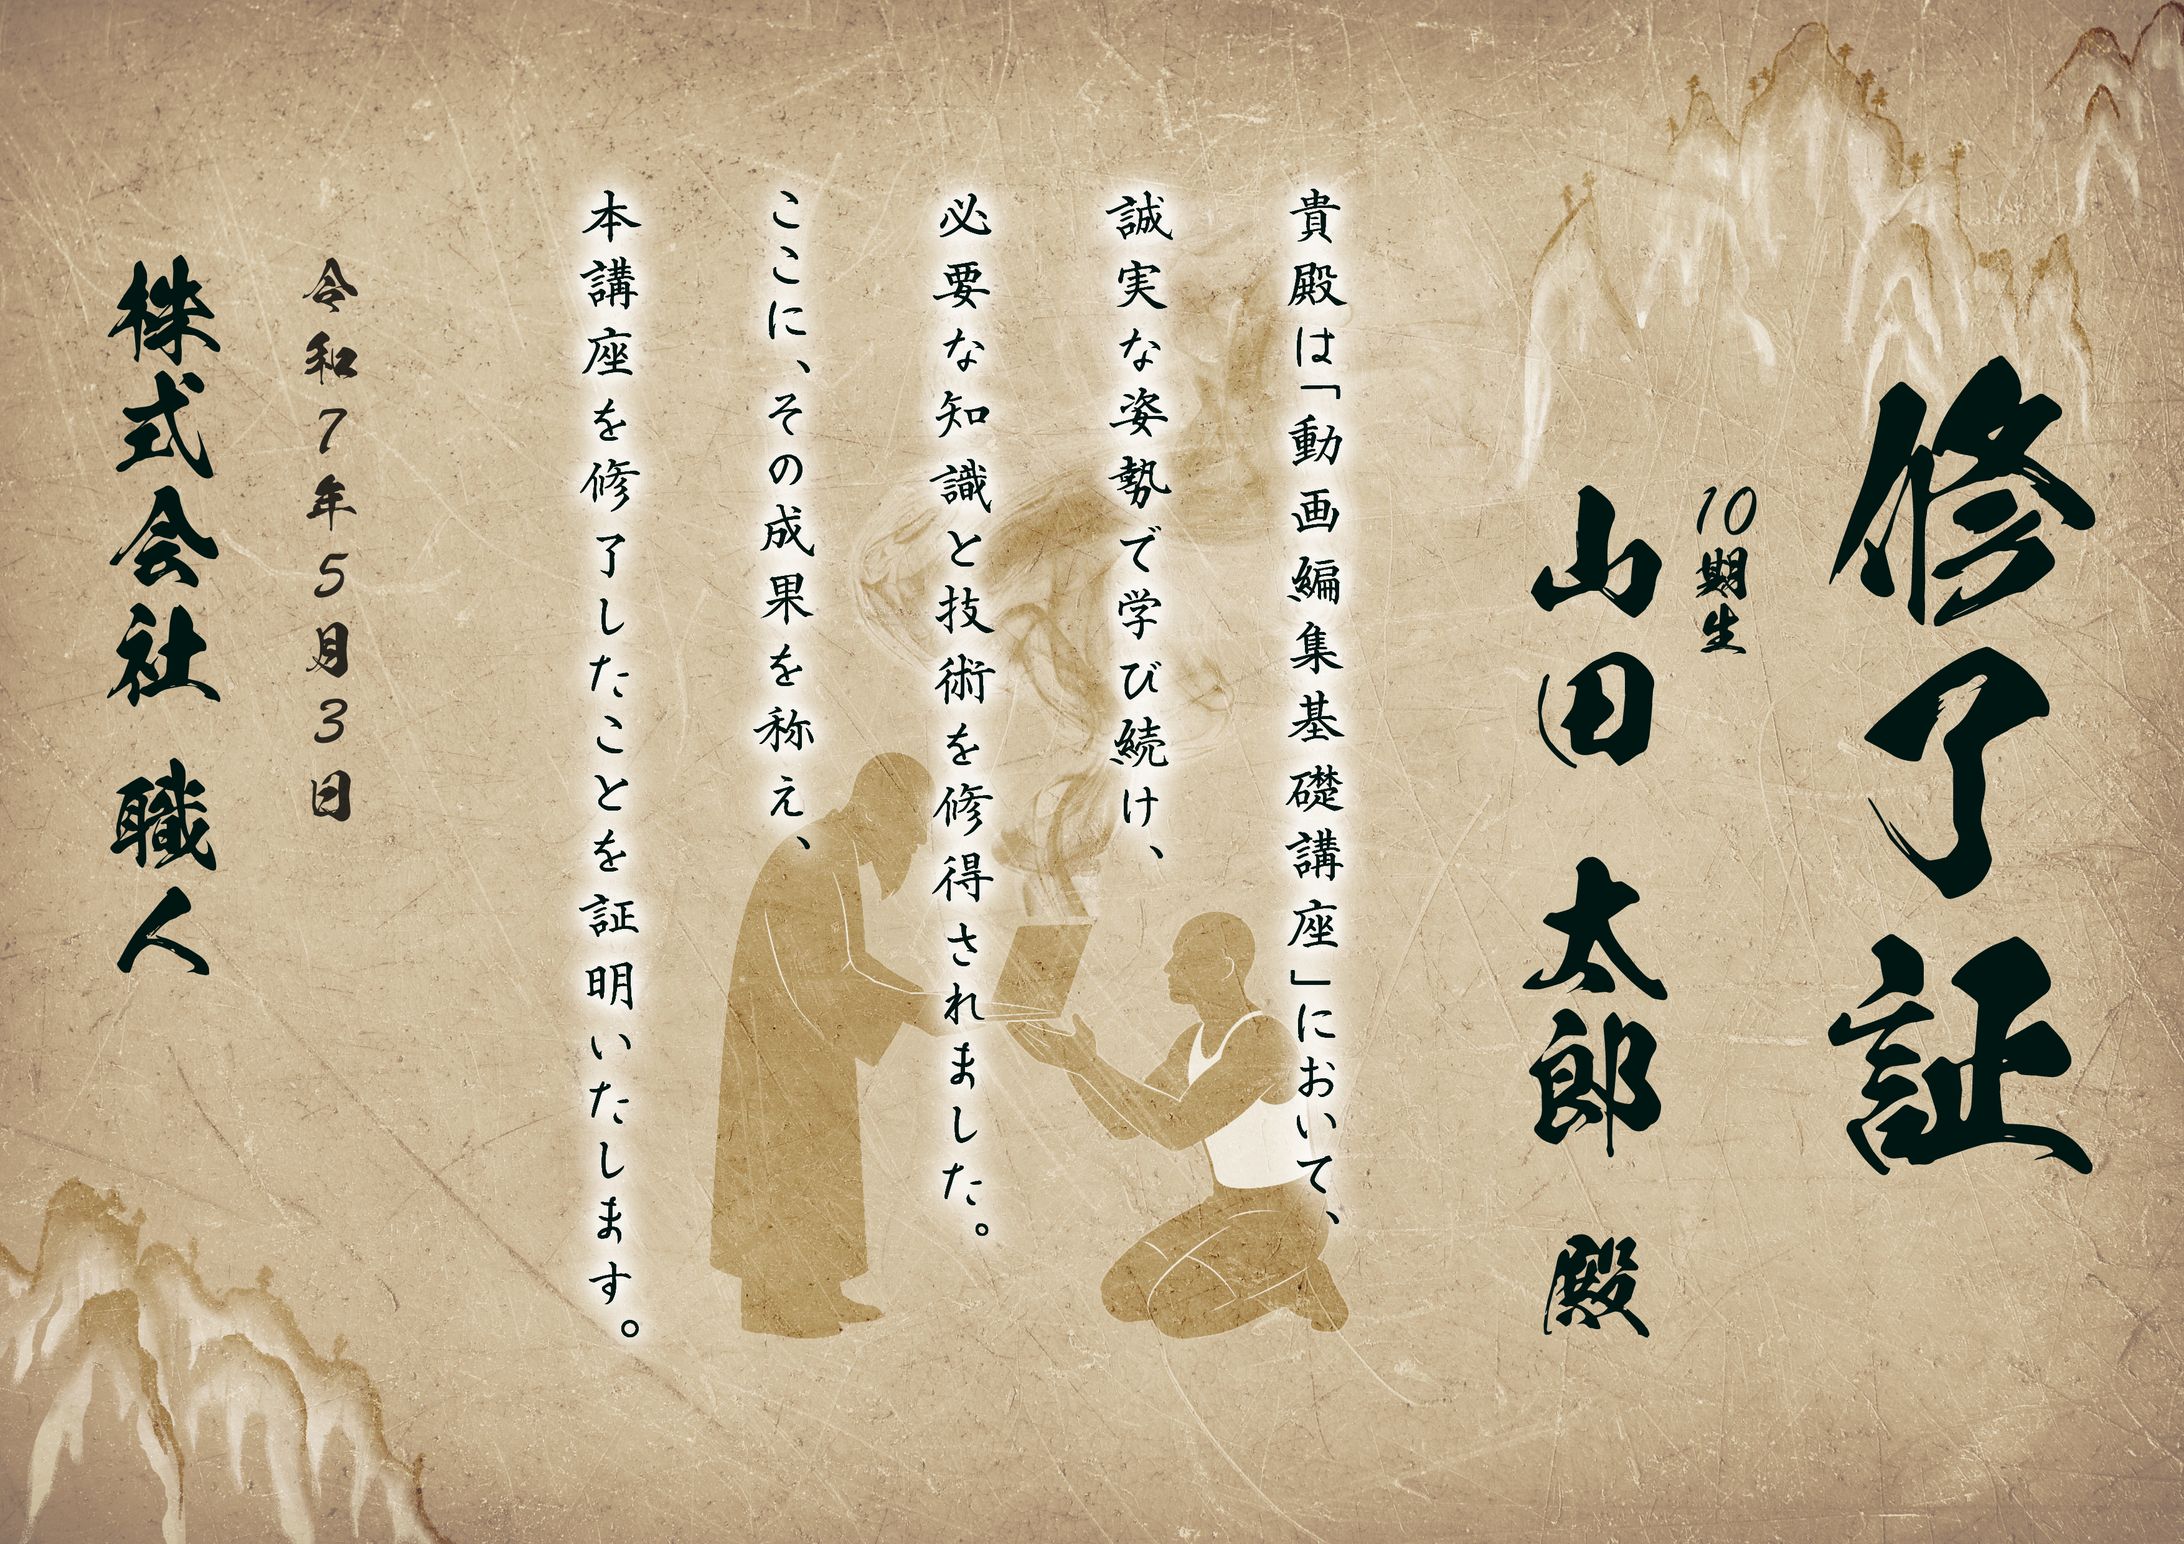 修了証
10期生
山田 太郎 殿
貴殿は「動画編集基礎講座」において、
誠実な姿勢で学び続け、
必要な知識と技術を修得されました。
ここに、その成果を称え、
本講座を修了したことを証明いたします。
令和7年5月3日
株式会社 職人